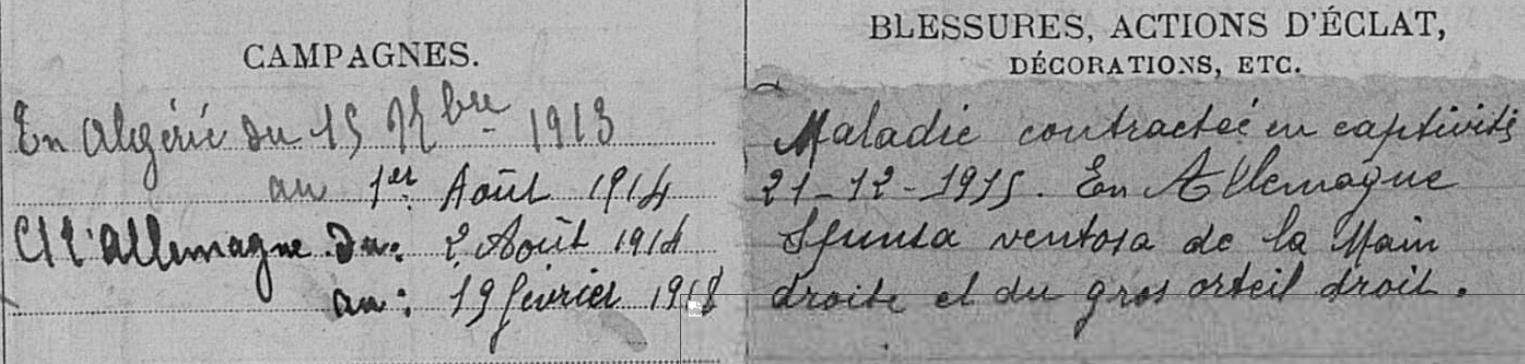 CAMPAGNES.
En Algérie du 15 9bre 1913
au 1er Août 1914
Ct l'Allemagne du: 2 Août 1914
au: 19 février 1918
BLESSURES, ACTIONS D'ÉCLAT,
DÉCORATIONS, ETC.
Maladie contractée en captivité
21-12-1915. En Allemagne
Spunta ventosa de la Main
droite et du gros orteil droit.